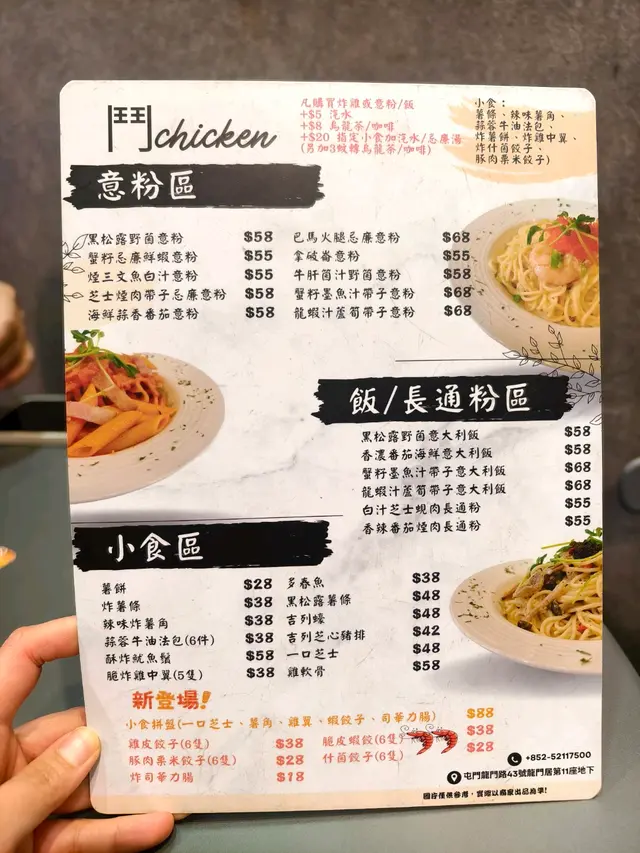 鬥chicken
凡購買炸雞或意粉/飯
+$5 汽水
+$8 烏龍茶/咖啡
+$20 指定小食加汽水/忌廉湯
(另加3蚊轉烏龍茶/咖啡)
小食：
薯條、辣味薯角、
蒜蓉牛油法包、
炸薯餅、炸雞中翼、
炸什菌餃子、
豚肉栗米餃子)
意粉區
黑松露野菌意粉 $58
蟹籽忌廉鮮蝦意粉 $55
煙三文魚白汁意粉 $55
芝士煙肉帶子忌廉意粉 $58
海鮮蒜香番茄意粉 $58
巴馬火腿忌廉意粉 $68
拿破崙意粉 $55
牛肝菌汁野菌意粉 $58
蟹籽墨魚汁帶子意粉 $68
龍蝦汁蘆筍帶子意粉 $68
飯/長通粉區
黑松露野菌意大利飯 $58
香濃番茄海鮮意大利飯 $58
蟹籽墨魚汁帶子意大利飯 $68
龍蝦汁蘆筍帶子意大利飯 $68
白汁芝士蜆肉長通粉 $55
香辣番茄煙肉長通粉 $55
小食區
薯餅 $28
炸薯條 $38
辣味炸薯角 $38
蒜蓉牛油法包(6件) $38
酥炸魷魚鬚 $58
脆炸雞中翼(5隻) $38
多春魚 $38
黑松露薯條 $48
吉列蠔 $48
吉列芝心豬排 $42
一口芝士 $48
雞軟骨 $58
新登場!
小食拼盤(一口芝士、薯角、雞翼、蝦餃子、司華力腸) $88
雞皮餃子(6隻) $38
豚肉栗米餃子(6隻) $28
炸司華力腸 $18
脆皮蝦餃(6隻) $38
什菌餃子(6隻) $28
+852-52117500
屯門龍門路43號龍門居第11座地下
圖片僅供參考，實際以商家出品為準!